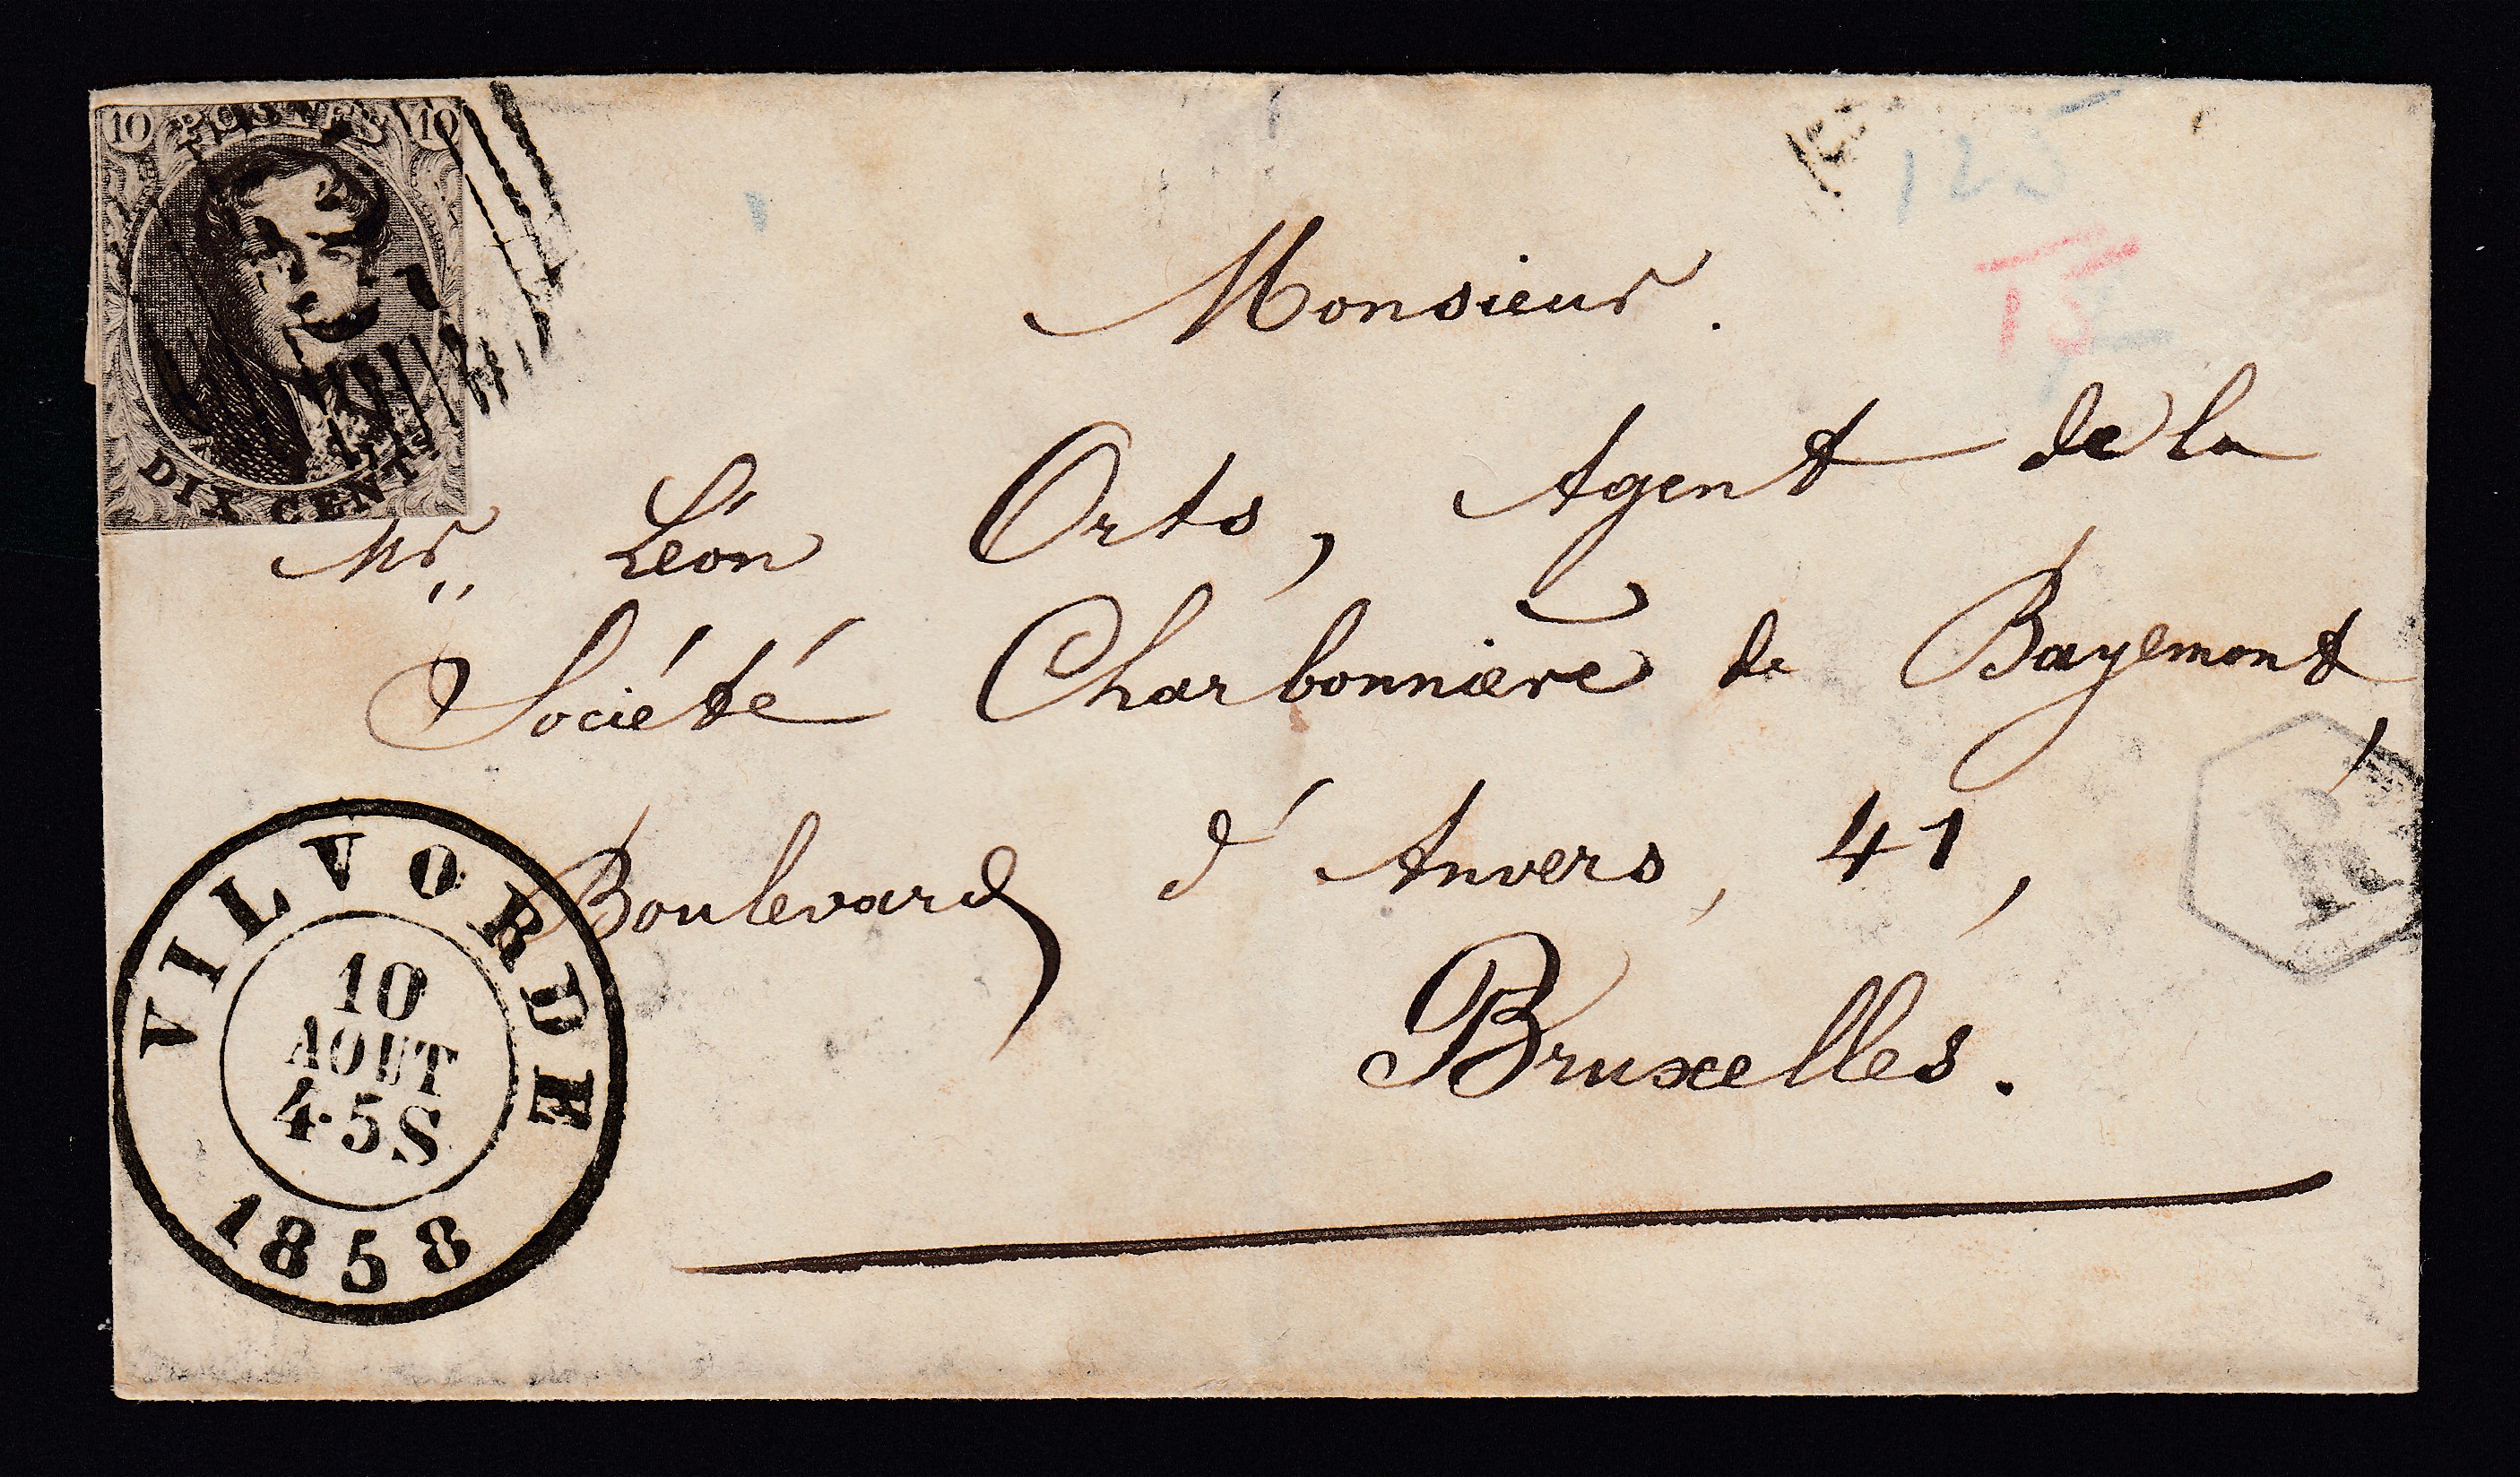 10 POSTES 10
DIX CENTS
Monsieur.
Mr Léon Orts, Agent de la
Société Charbonnière de Bayemont,
Boulevard d'Anvers, 41,
Bruxelles.
VILVORDE
10
AOUT
4·5S
1858
R
125
15